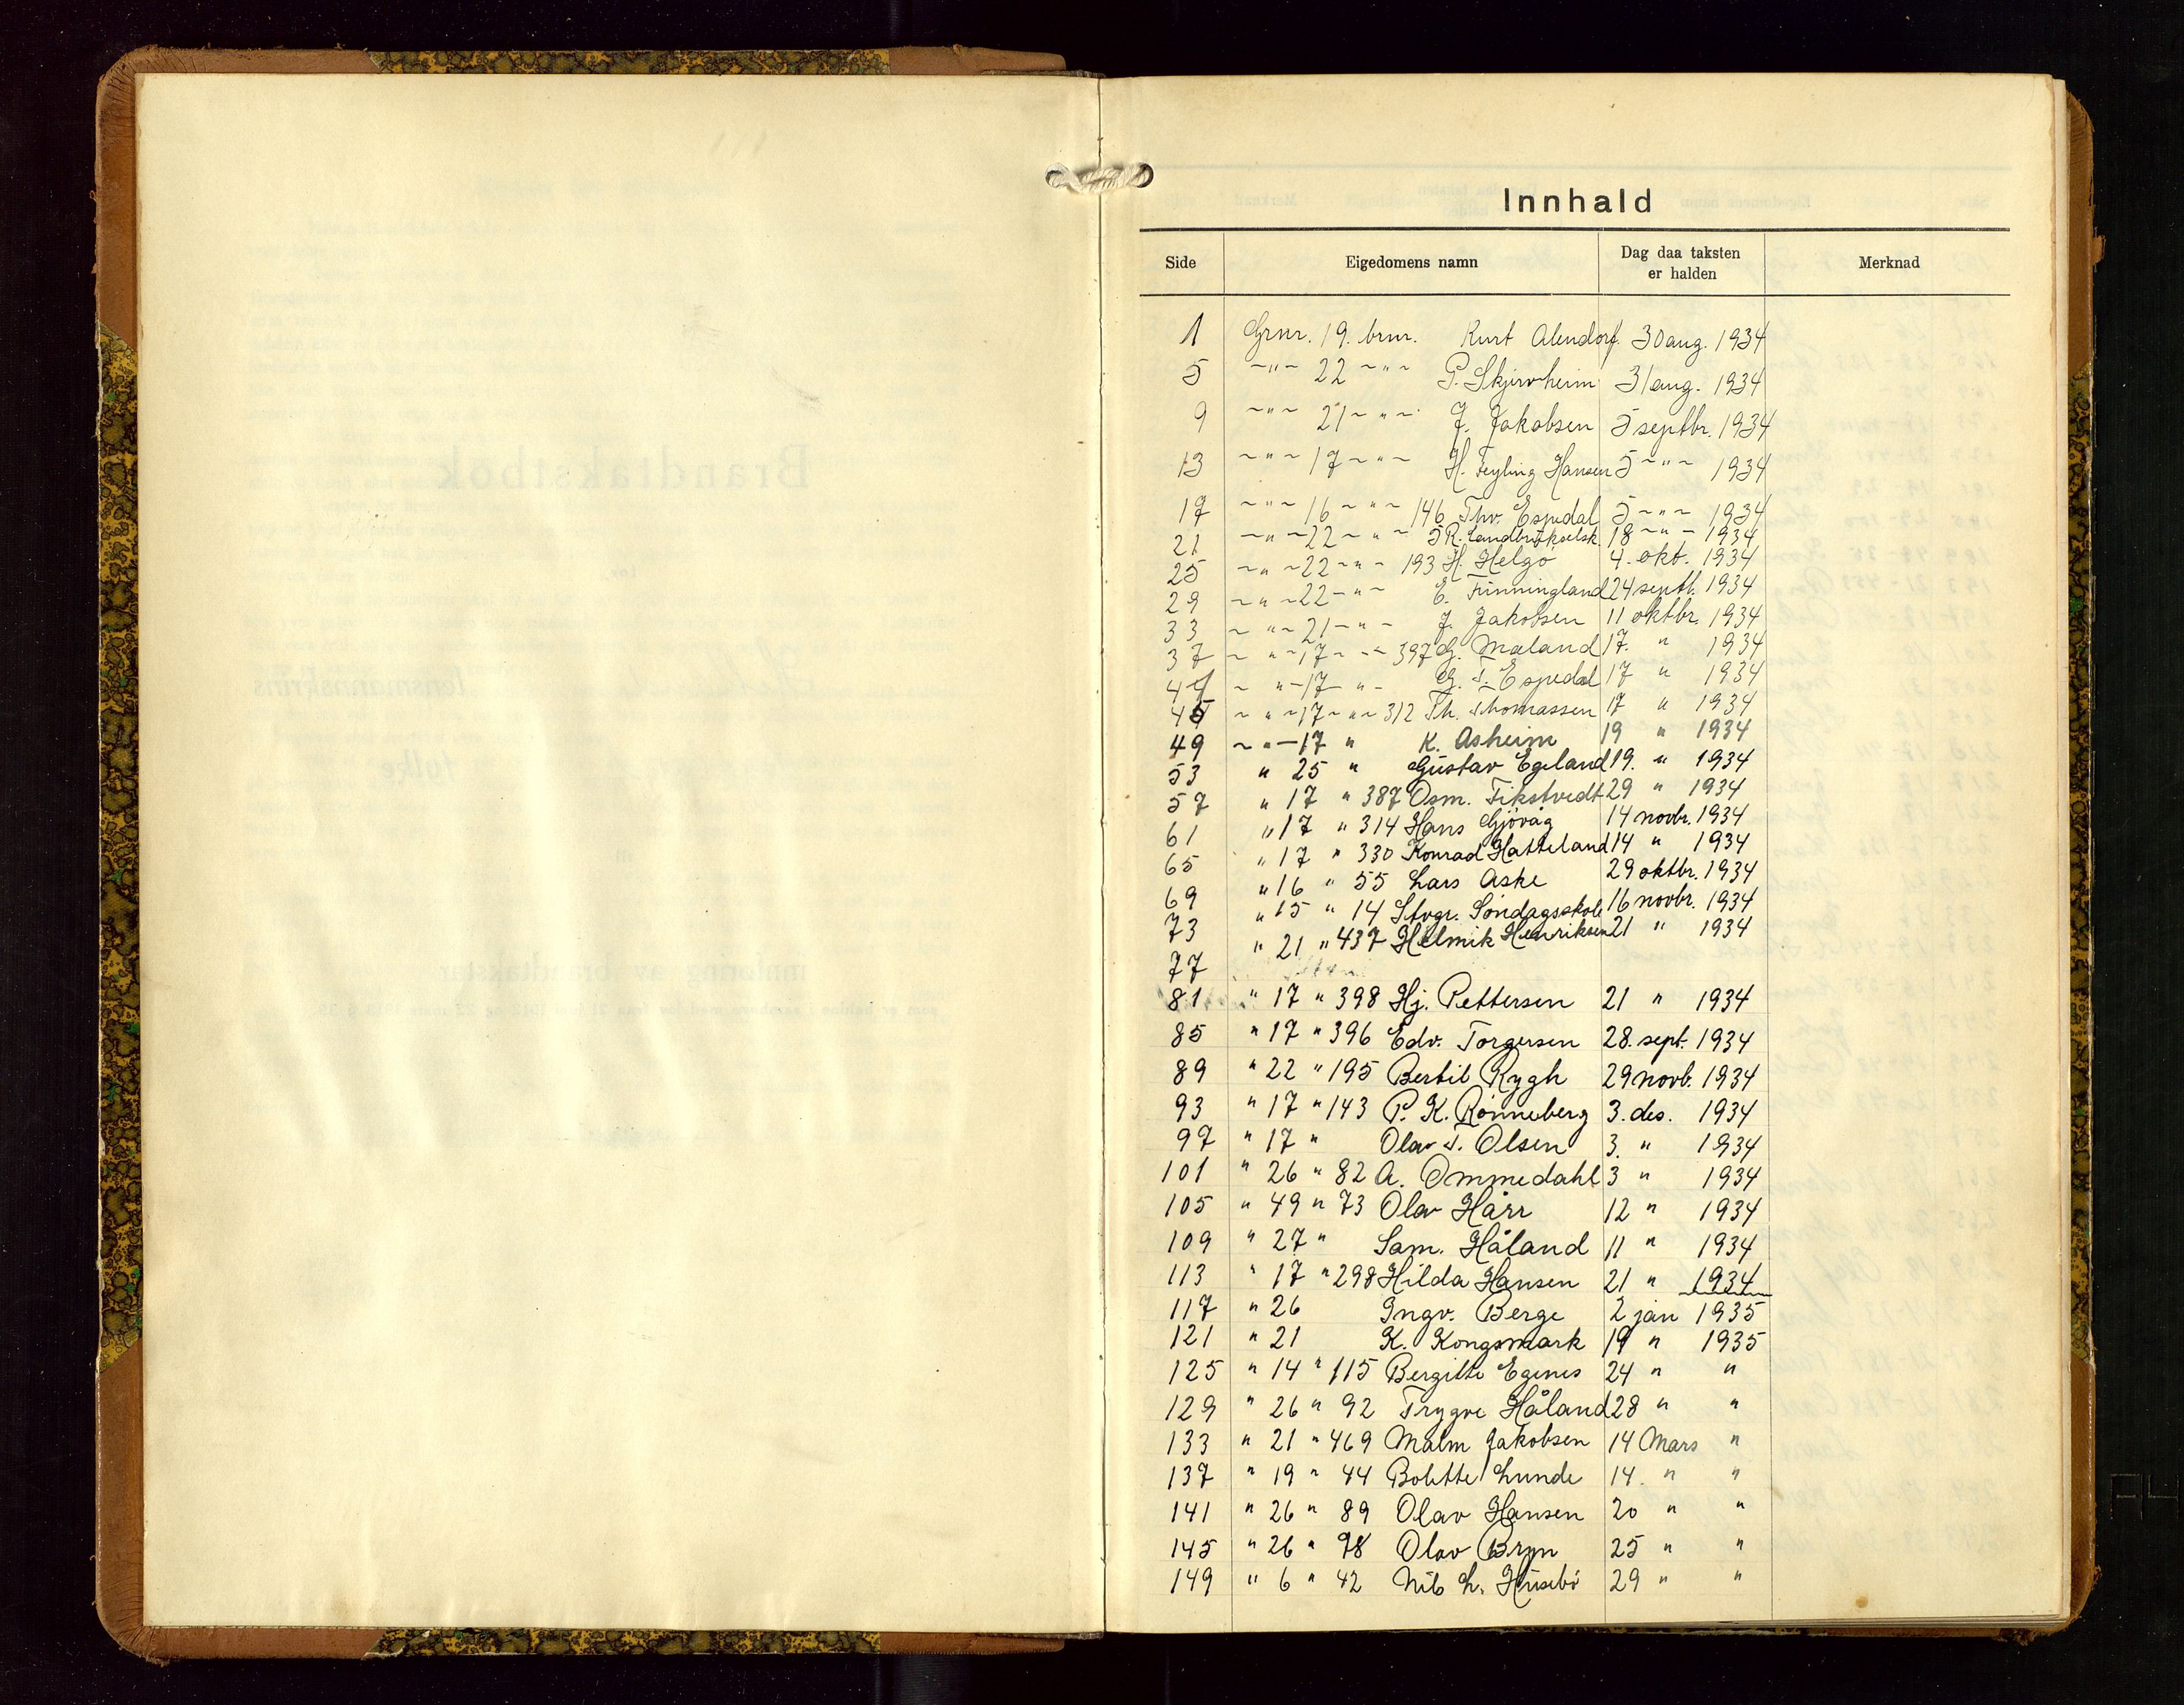 Innhald
Side Eigedomens namn Dag daa taksten er halden Merknad
1 Grnr. 19. brnr. Kurt Alendorf. 30 aug. 1934
5 ~"~ 22 ~"~ P. Skjerveheim 31 aug. 1934
9 ~"~ 21 ~"~ J. Jakobsen 5 septbr. 1934
13 ~"~ 17 ~"~ H. Feyling Hansen 5 ~"~ 1934
17 ~"~ 16 ~"~ 146 Thv. Espedal 5 ~"~ 1934
21 ~"~ 22 ~"~ 5 R. Landbrukselsk. 18 ~"~ 1934
25 ~"~ 22 ~"~ 193 H. Helgö 4. okt. 1934
29 ~"~ 22 ~"~ E. Finningland 24 septb. 1934
33 ~"~ 21 ~"~ J. Jakobsen 11 oktbr. 1934
37 ~"~ 17 ~"~ 397 G. Maland 17. " 1934
41 ~ "~ 17 "~ G. T. Espedal 17 " 1934
45 ~"~ 17 ~"~ 312 Th. Thomassen 17 " 1934
49 ~"~ 17 " K. Asheim 19 " 1934
53 " 25 " Gustav Egeland 19. " 1934
57 " 17 " 387 Osm. Tikstvedt 29 " 1934
61 " 17 " 314 Hans Gjövåg 14 novbr. 1934
65 " 17 " 330 Konrad Hatteland 14 " 1934
69 " 16 " 55 Lars Aske 29 oktbr. 1934
73 " 15 " 14 Stvgr. Söndagsskole 16 novbr. 1934
77 " 21 " 437 Helmik Henriksen 21 " 1934
81 " 17 " 398 Hj. Pettersen 21 " 1934
85 " 17 " 396 Edv. Torgersen 28. sept. 1934
89 " 22 " 195 Bertil Rygh 29 novb. 1934
93 " 17 " 143 P. K. Rönneberg 3. des. 1934
97 " 17 " Olav T. Olsen 3. " 1934
101 " 26 " 82 A. Ommedahl 3 " 1934
105 " 49 " 73 Olav Hårr 12 " 1934
109 " 27 " Sam. Håland 11 " 1934
113 " 17 " 298 Hilda Hansen 21 " 1934
117 " 26 Ingv. Berge 2 jan 1935
121 " 21 K. Kongsmark 19 " 1935
125 " 14 " 115 Bergitte Egenes 24 " "
129 " 26 " 92 Trygve Håland 28 " "
133 " 21 " 469 Malm Jakobsen 14 Mars "
137 " 19 " 44 Bolette Lunde 14. " "
141 " 26 " 89 Olav Hansen 20 " "
145 " 26 " 98 Olav Bryn 25 " "
149 " 6 " 42 Nils L. Husebö 29 " "